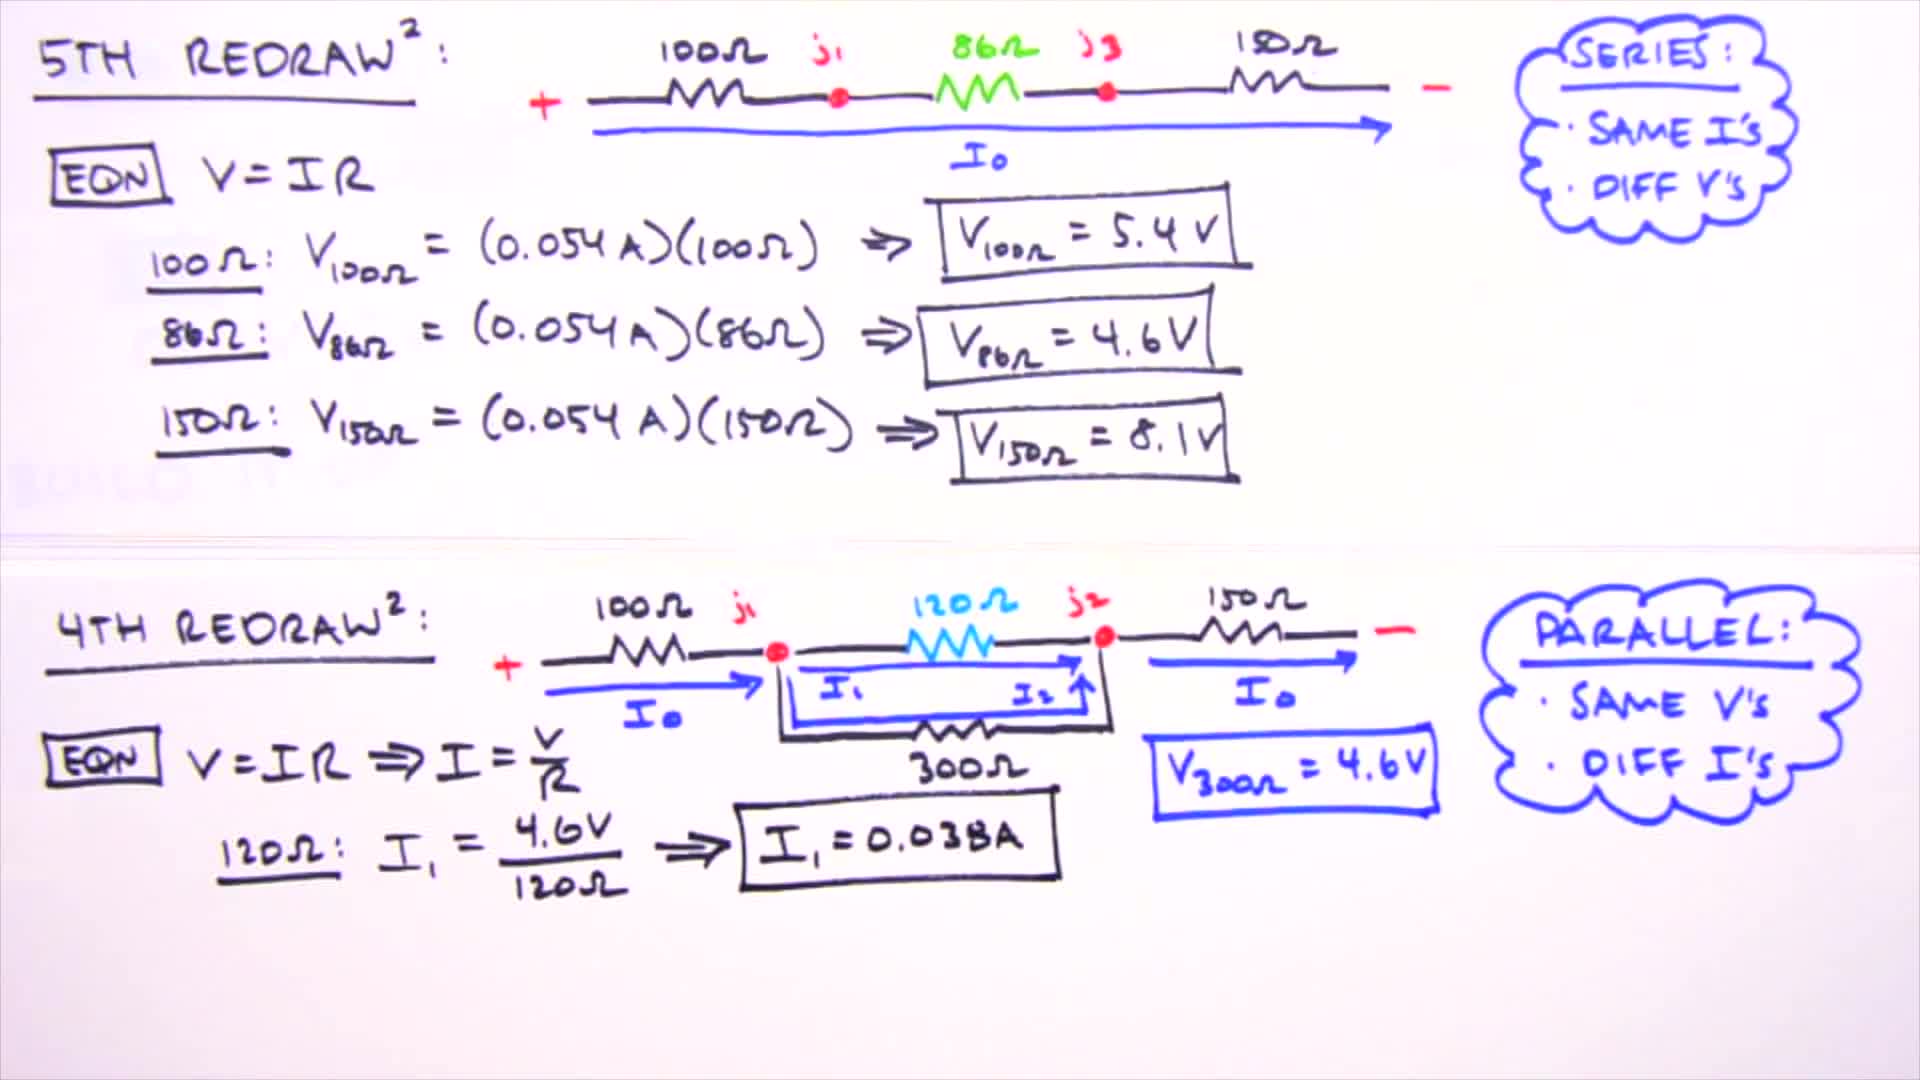 5TH REDRAW²:
100Ω j₁ 86Ω j3 150Ω
+ −
I₀
SERIES:
· SAME I's
· DIFF V's
EQN V = IR
100Ω: V₁₀₀Ω = (0.054 A)(100Ω) ⇒ V₁₀₀Ω = 5.4 V
86Ω: V₈₆Ω = (0.054 A)(86Ω) ⇒ V₈₆Ω = 4.6 V
150Ω: V₁₅₀Ω = (0.054 A)(150Ω) ⇒ V₁₅₀Ω = 8.1 V
4TH REDRAW²:
100Ω j₁ 120Ω j2 150Ω
+ −
I₀ I₁ I₂ I₀
300Ω
PARALLEL:
· SAME V's
· DIFF I's
EQN V = IR ⇒ I = V/R
V₃₀₀Ω = 4.6 V
120Ω: I₁ = 4.6V/120Ω ⇒ I₁ = 0.038A